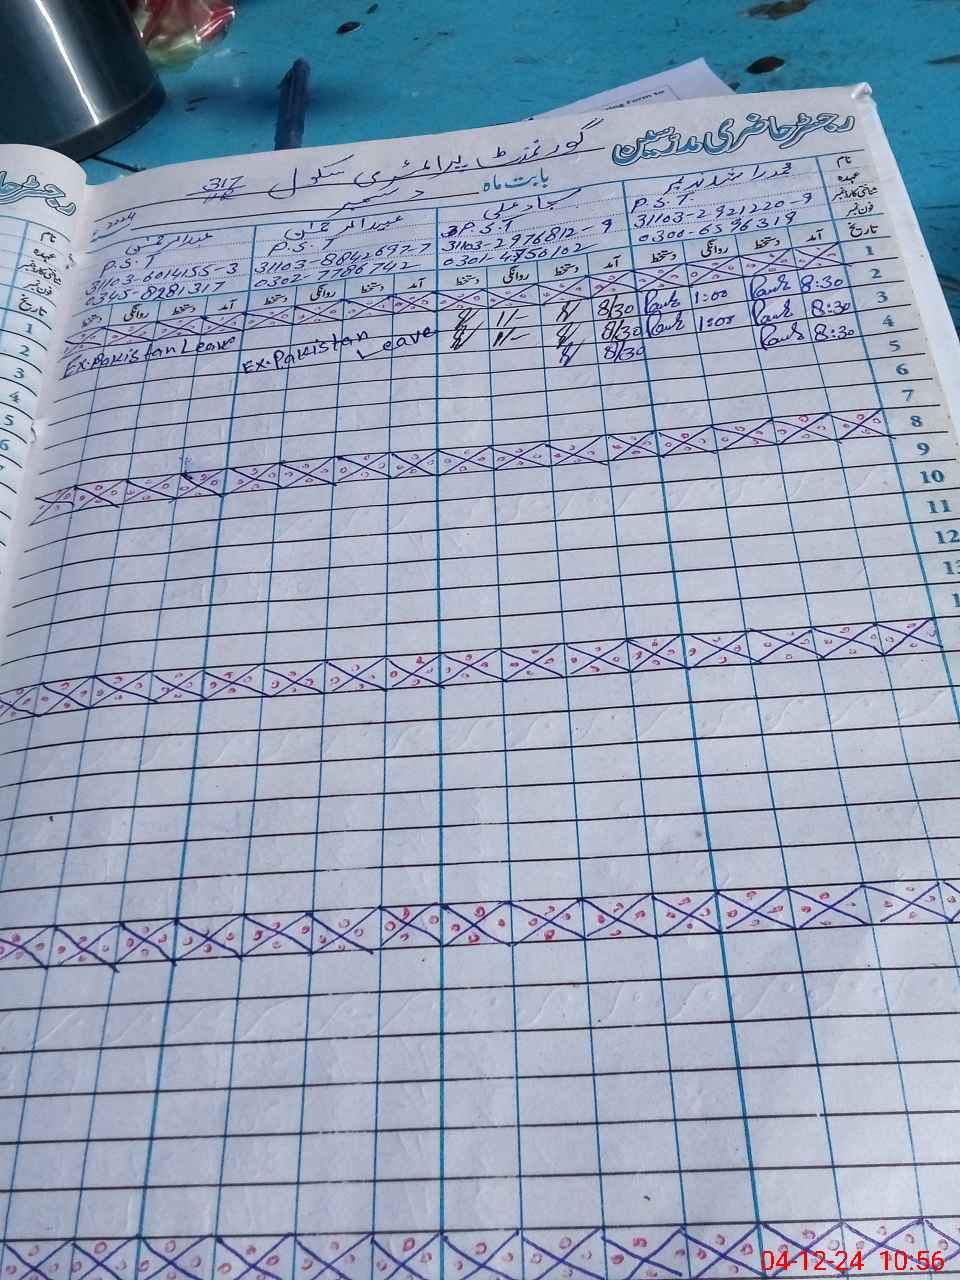 رجسٹر حاضری مدرسین
گورنمنٹ پرائمری سکول 317
بابت ماہ دسمبر 2024
نام محمد راشد ندیم سجاد علی
عہدہ P.S.T P.S.T P.S.T P.S.T
شناختی کارڈ نمبر 31103-2921220-9 31103-2976812-9 31103-8842697-7 31103-6014155-3
فون نمبر 0300-6596319 0301-4750102 0302-7786742 0345-8281317
تاریخ آمد دستخط روانگی دستخط آمد دستخط روانگی دستخط آمد دستخط روانگی دستخط آمد دستخط روانگی دستخط
1
2 8:30 1:00 8/30 1/- Ex-Pakistan Leave Ex-Pakistan Leave
3 8:30 1:00 8/30 1/-
4 8:30 8/30
5
6
7
8
9
10
11
12
13
1
نام
عہدہ
شناختی کارڈ نمبر
فون نمبر
تاریخ
1
2
3
4
5
6
04-12-24 10:56